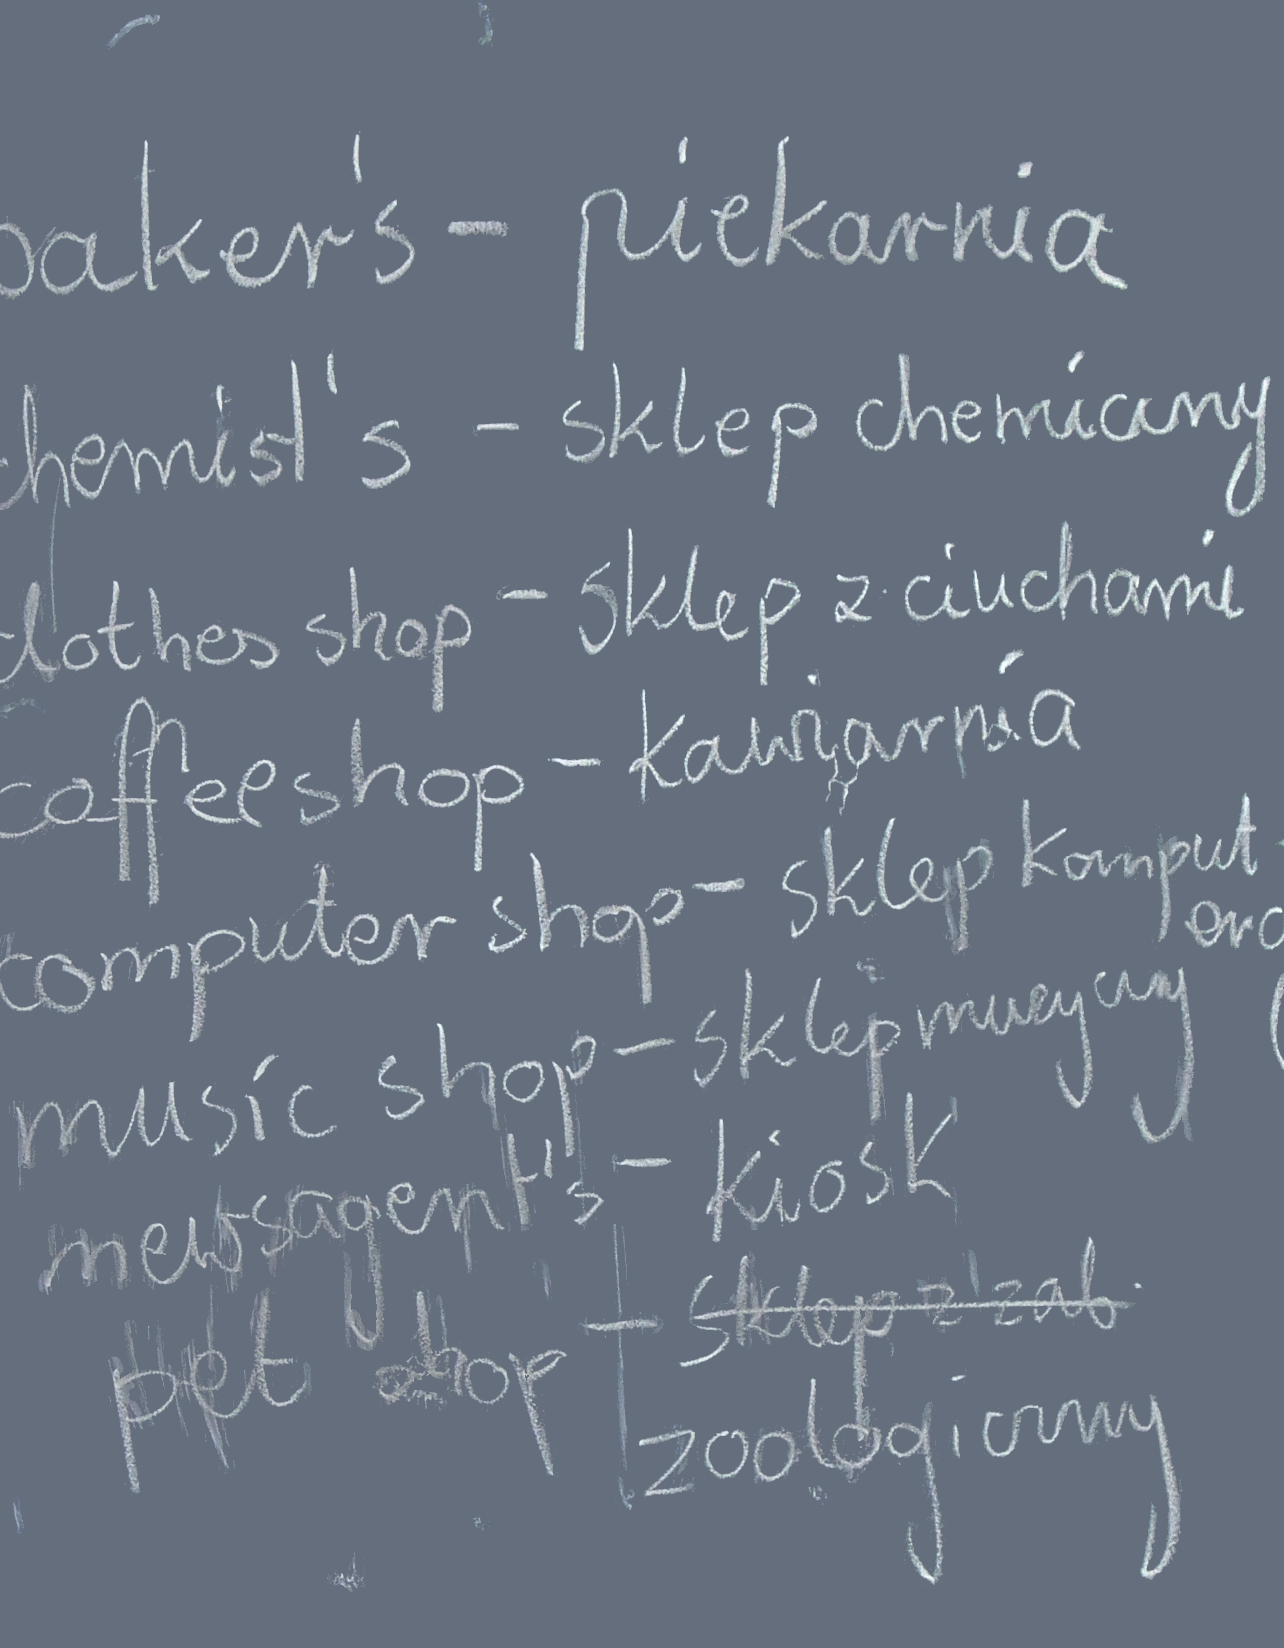 baker's - piekarnia
chemist's - sklep chemiczny
clothes shop - sklep z ciuchami
coffeeshop - kawiarnia
computer shop - sklep komput-
music shop - sklep muzyczny
newsagent's - kiosk
pet shop - sklep z zab.
zoologiczny